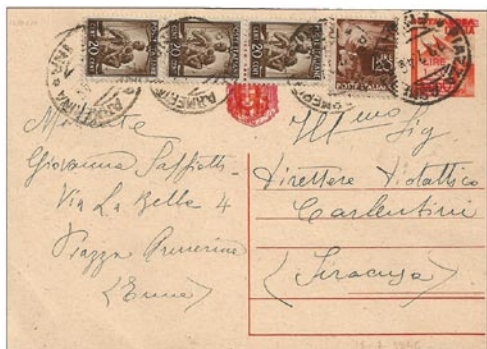 20 CENT
20 CENT
20 CENT
POSTE ITALIANE
PIAZZA ARMERINA
LIRE
Mittente
Giovanna
Via La Bella 4
Piazza Armerina
(Enna)
Ill mo Sig
Direttore Didattico
Carlentini
(Siracusa)